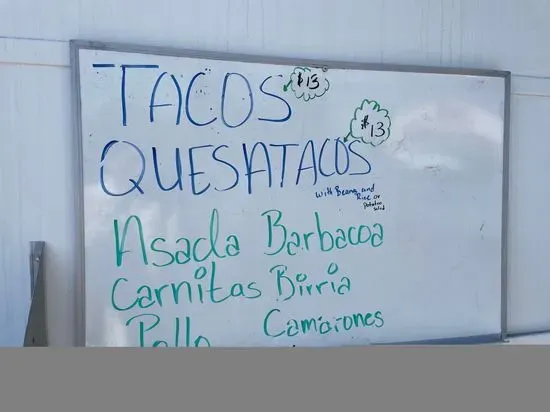 TACOS $13
QUESATACOS $13
with Beans and
Rice or
Potatoe
salad
Asada Barbacoa
Carnitas Birria
Pollo Camarones